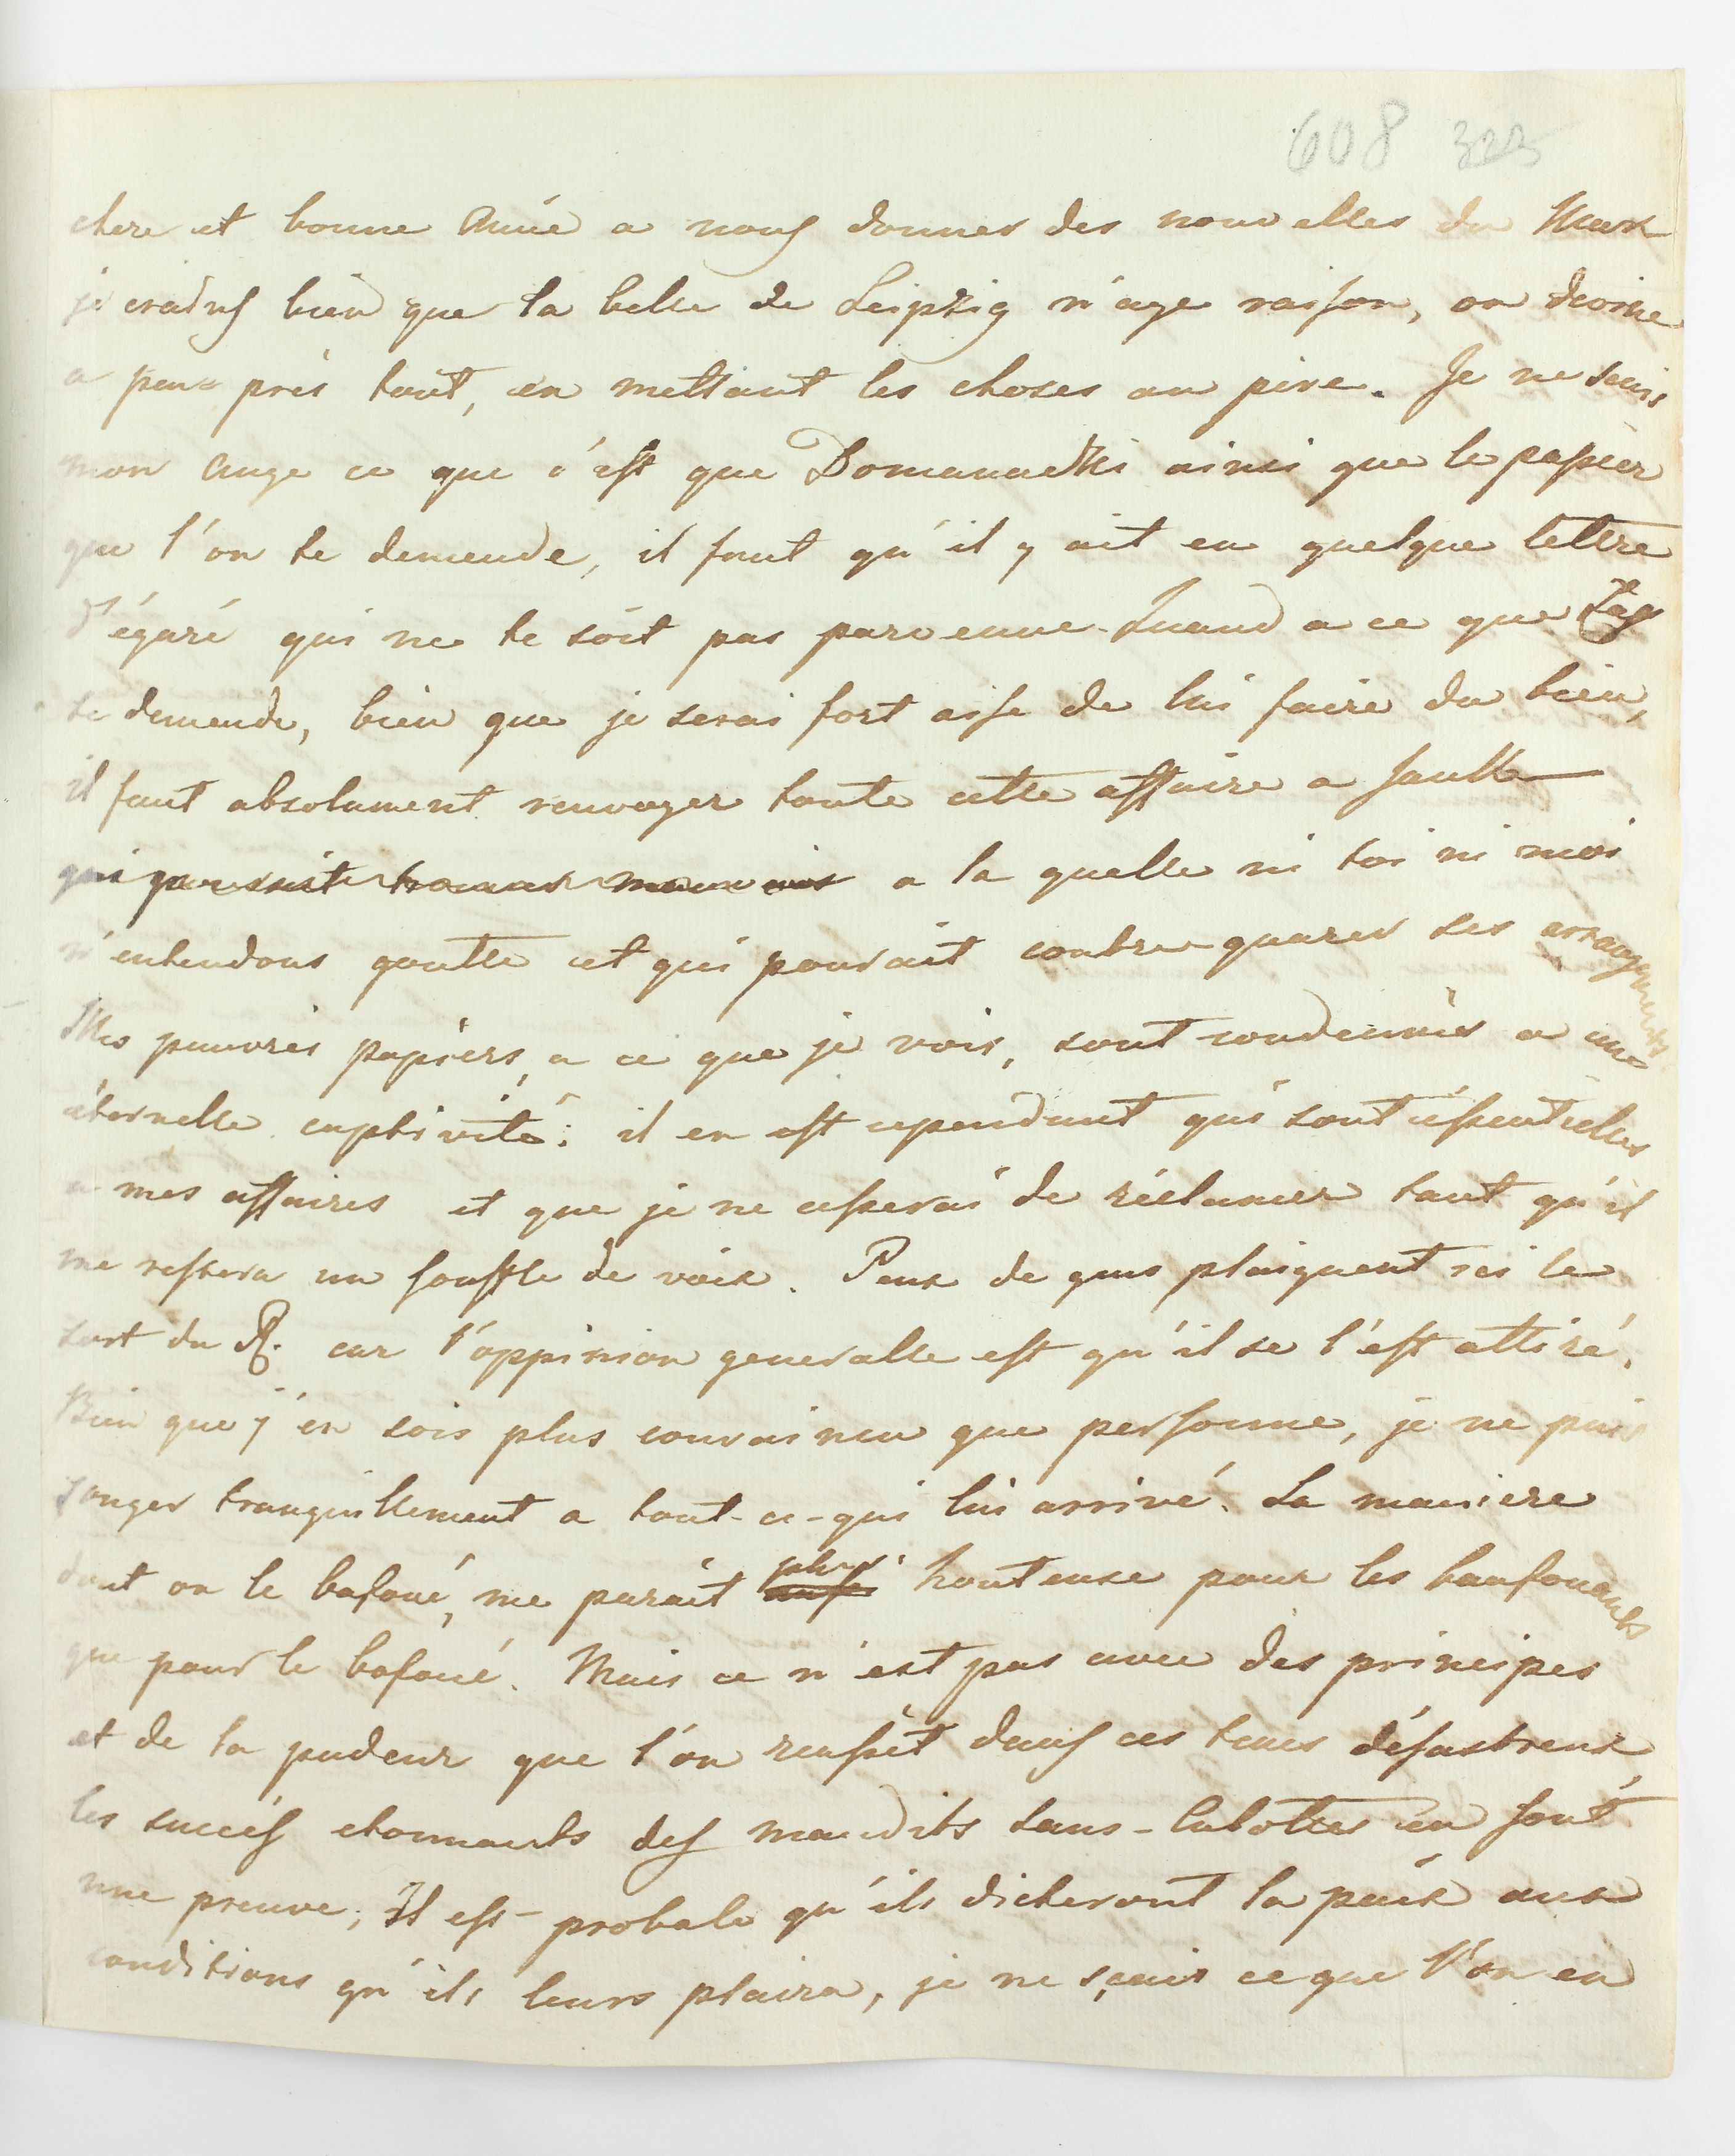 608 323
chere et bonne Amie a nous donner des nouvelles du
je crains bien que la belle de Leipzig n'aye raison, on devine
a peux près tout, en mettant les choses au pire. Je ne scais
mon Ange ce que c'est que ainsi que le papier
que l'on te demende, il faut qu'il y ait eu quelque lettre
d'égaré qui ne te soit pas parvenue. Quand a ce que
te demende, bien que je serai fort aise de lui faire du bien,
il faut absolument renvoyer toute cette affaire a
qui a la quelle ni toi ni moi
n'entendons goutte et qui pourait contrequarer ses arrangements
Mes pauvres papiers, a ce que je vois, sont condemnés a une
éternelle captivité; il en est cependant qui sont essentielles
a mes affaires et que je ne cesserai de réclamer tant qu'il
me restera un souffle de voix. Peux de gens plaignent ici le
sort du R. car l'oppinion generalle est qu'il se l'est attiré.
Bien que j'en sois plus convaincu que personne, je ne puis
songer tranquillement a tout-ce-qui lui arrive. La maniere
dont on le bafoue, me parait plus honteuse pour les baufouants
que pour le bafoué. Mais ce n'est pas avec des principes
et de la pudeur que l'on reussit dans ces tems désastreux,
les succés etonnants des maudits sans-Culottes en font
une preuve; Il est probale qu'ils dicteront la paix aux
conditions qu'ils leurs plaira, je ne sçais ce que l'on en